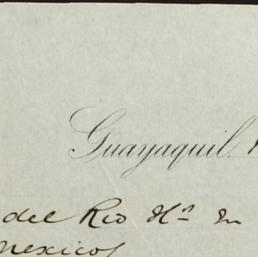 Guayaquil
del Rio Hº. en
mexicos